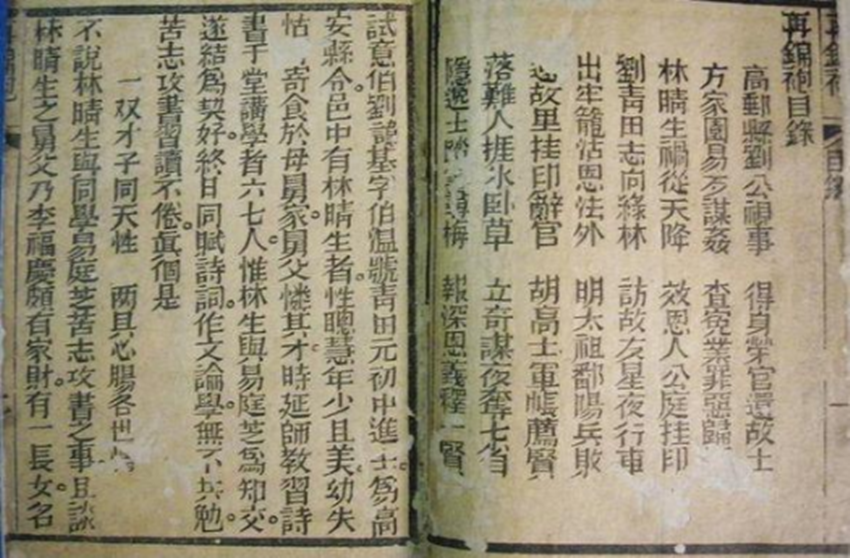 再錦袍 目錄 一
再錦袍目錄
高郵縣劉公視事 得身榮官還故士
方家園易歹謀姦 查冤業罪惡歸
林晴生禍從天降 效恩人公庭挂印
劉青田志向綠林 訪故友星夜行車
出牢籠沾恩法外 明太祖鄱陽兵敗
故里挂印辭官 胡高士軍帳薦賢
落難人捱氷臥草 立奇謀夜奪七省
隱逸士踏 尋梅 報深恩義釋一賢
試意伯劉諱基字伯溫號青田元初中進士爲高
安縣令邑中有林晴生者性聰慧年少且美幼失
怙 寄食於母舅家舅父憐其才時延師教習詩
書于堂講學者六七人惟林生與易庭芝爲知交
遂結爲契好終日同賦詩詞作文論學無不共勉
苦志攻書習讀不倦眞個是
一双才子同天性 两具心腸各世情
不說林晴生與同學易庭芝苦志攻書之事且說
林晴生之舅父乃李福慶頗有家財有一長女名